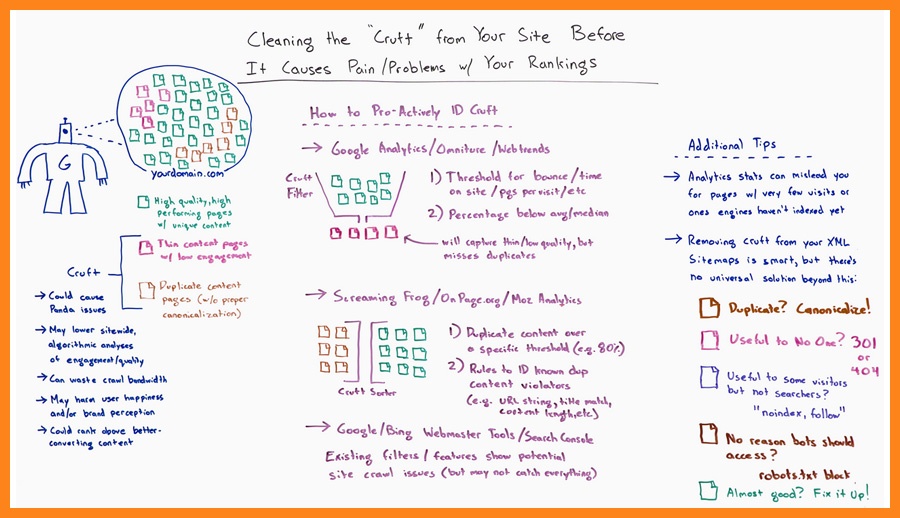 Cleaning the "Cruft" from Your Site Before
It Causes Pain/Problems w/ Your Rankings
G
yourdomain.com
High quality, high
performing pages
w/ unique content
Thin content pages
w/ low engagement
Duplicate content
pages (w/o proper
canonicalization)
Cruft
→ Could cause
Panda issues
→ May lower sitewide,
algorithmic analyses
of engagement/quality
→ Can waste crawl bandwidth
→ May harm user happiness
and/or brand perception
→ Could rank above better-
converting content
How to Pro-Actively ID Cruft
→ Google Analytics/Omniture/Webtrends
Cruft
Filter
1) Threshold for bounce/time
on site/pgs per visit/etc
2) Percentage below avg/median
will capture thin/low quality, but
misses duplicates
→ Screaming Frog/OnPage.org/Moz Analytics
Cruft Sorter
1) Duplicate content over
a specific threshold (e.g. 80%)
2) Rules to ID known dup
content violators
(e.g. URL string, title match,
content length, etc)
→ Google/Bing Webmaster Tools/Search Console
Existing filters/features show potential
site crawl issues (but may not catch everything)
Additional Tips
→ Analytics stats can mislead you
for pages w/ very few visits or
ones engines haven't indexed yet
→ Removing cruft from your XML
Sitemaps is smart, but there's
no universal solution beyond this:
Duplicate? Canonicalize!
Useful to No One? 301
or
404
Useful to some visitors
but not searchers?
"noindex, follow"
No reason bots should
access?
robots.txt block
Almost good? Fix it Up!